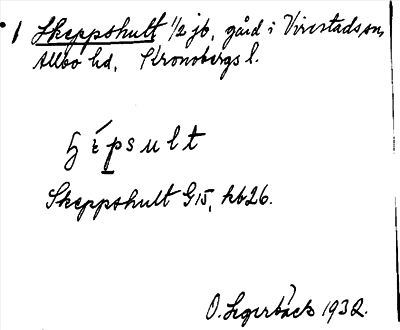 1 Skeppshult 1/2 jb, gård i Virestads sn,
Allbo hd, Kronobergs l.
ɧépsult
Skeppshult G15, hb26.
O. 1932.